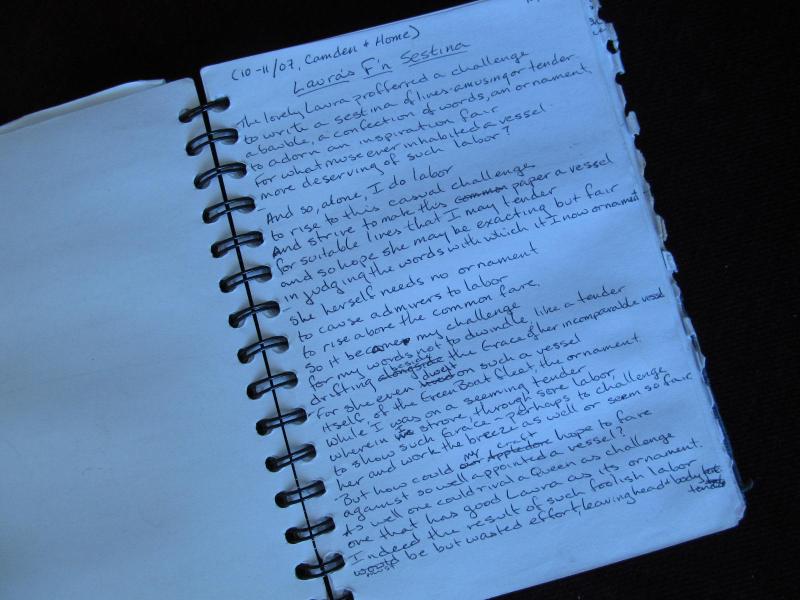 (10-11/07, Camden + Home)
Laura's F'n Sestina
The lovely Laura proffered a challenge
to write a sestina of lines amusing or tender
a bauble, a confection of words, an ornament
to adorn an inspiration fair
For what muse ever inhabited a vessel
more deserving of such labor?
And so, alone, I do labor
to rise to this casual challenge
And strive to make this common paper a vessel
for suitable lines that I may tender
and so hope she may be exacting but fair
in judging the words with which it I now ornament
She herself needs no ornament
to cause admirers to labor
to rise above the common fare,
So it becomes my challenge
for my words not to dwindle, like a tender
drifting alongside beside the Grace of her incomparable vessel
For she even dwelt on such a vessel
itself of the Green Boat fleet, the ornament.
while I was on a seeming tender
wherein I strove, through sore labor,
to show such Grace - perhaps to challenge
her and work the breeze as well or seem so fair
But how could my craft our Appledore hope to fare
against so well appointed a vessel?
As well one could rival a Queen as challenge
one that has good Laura as its ornament.
Indeed the result of such foolish labor
would must be but wasted effort, leaving head + body tender